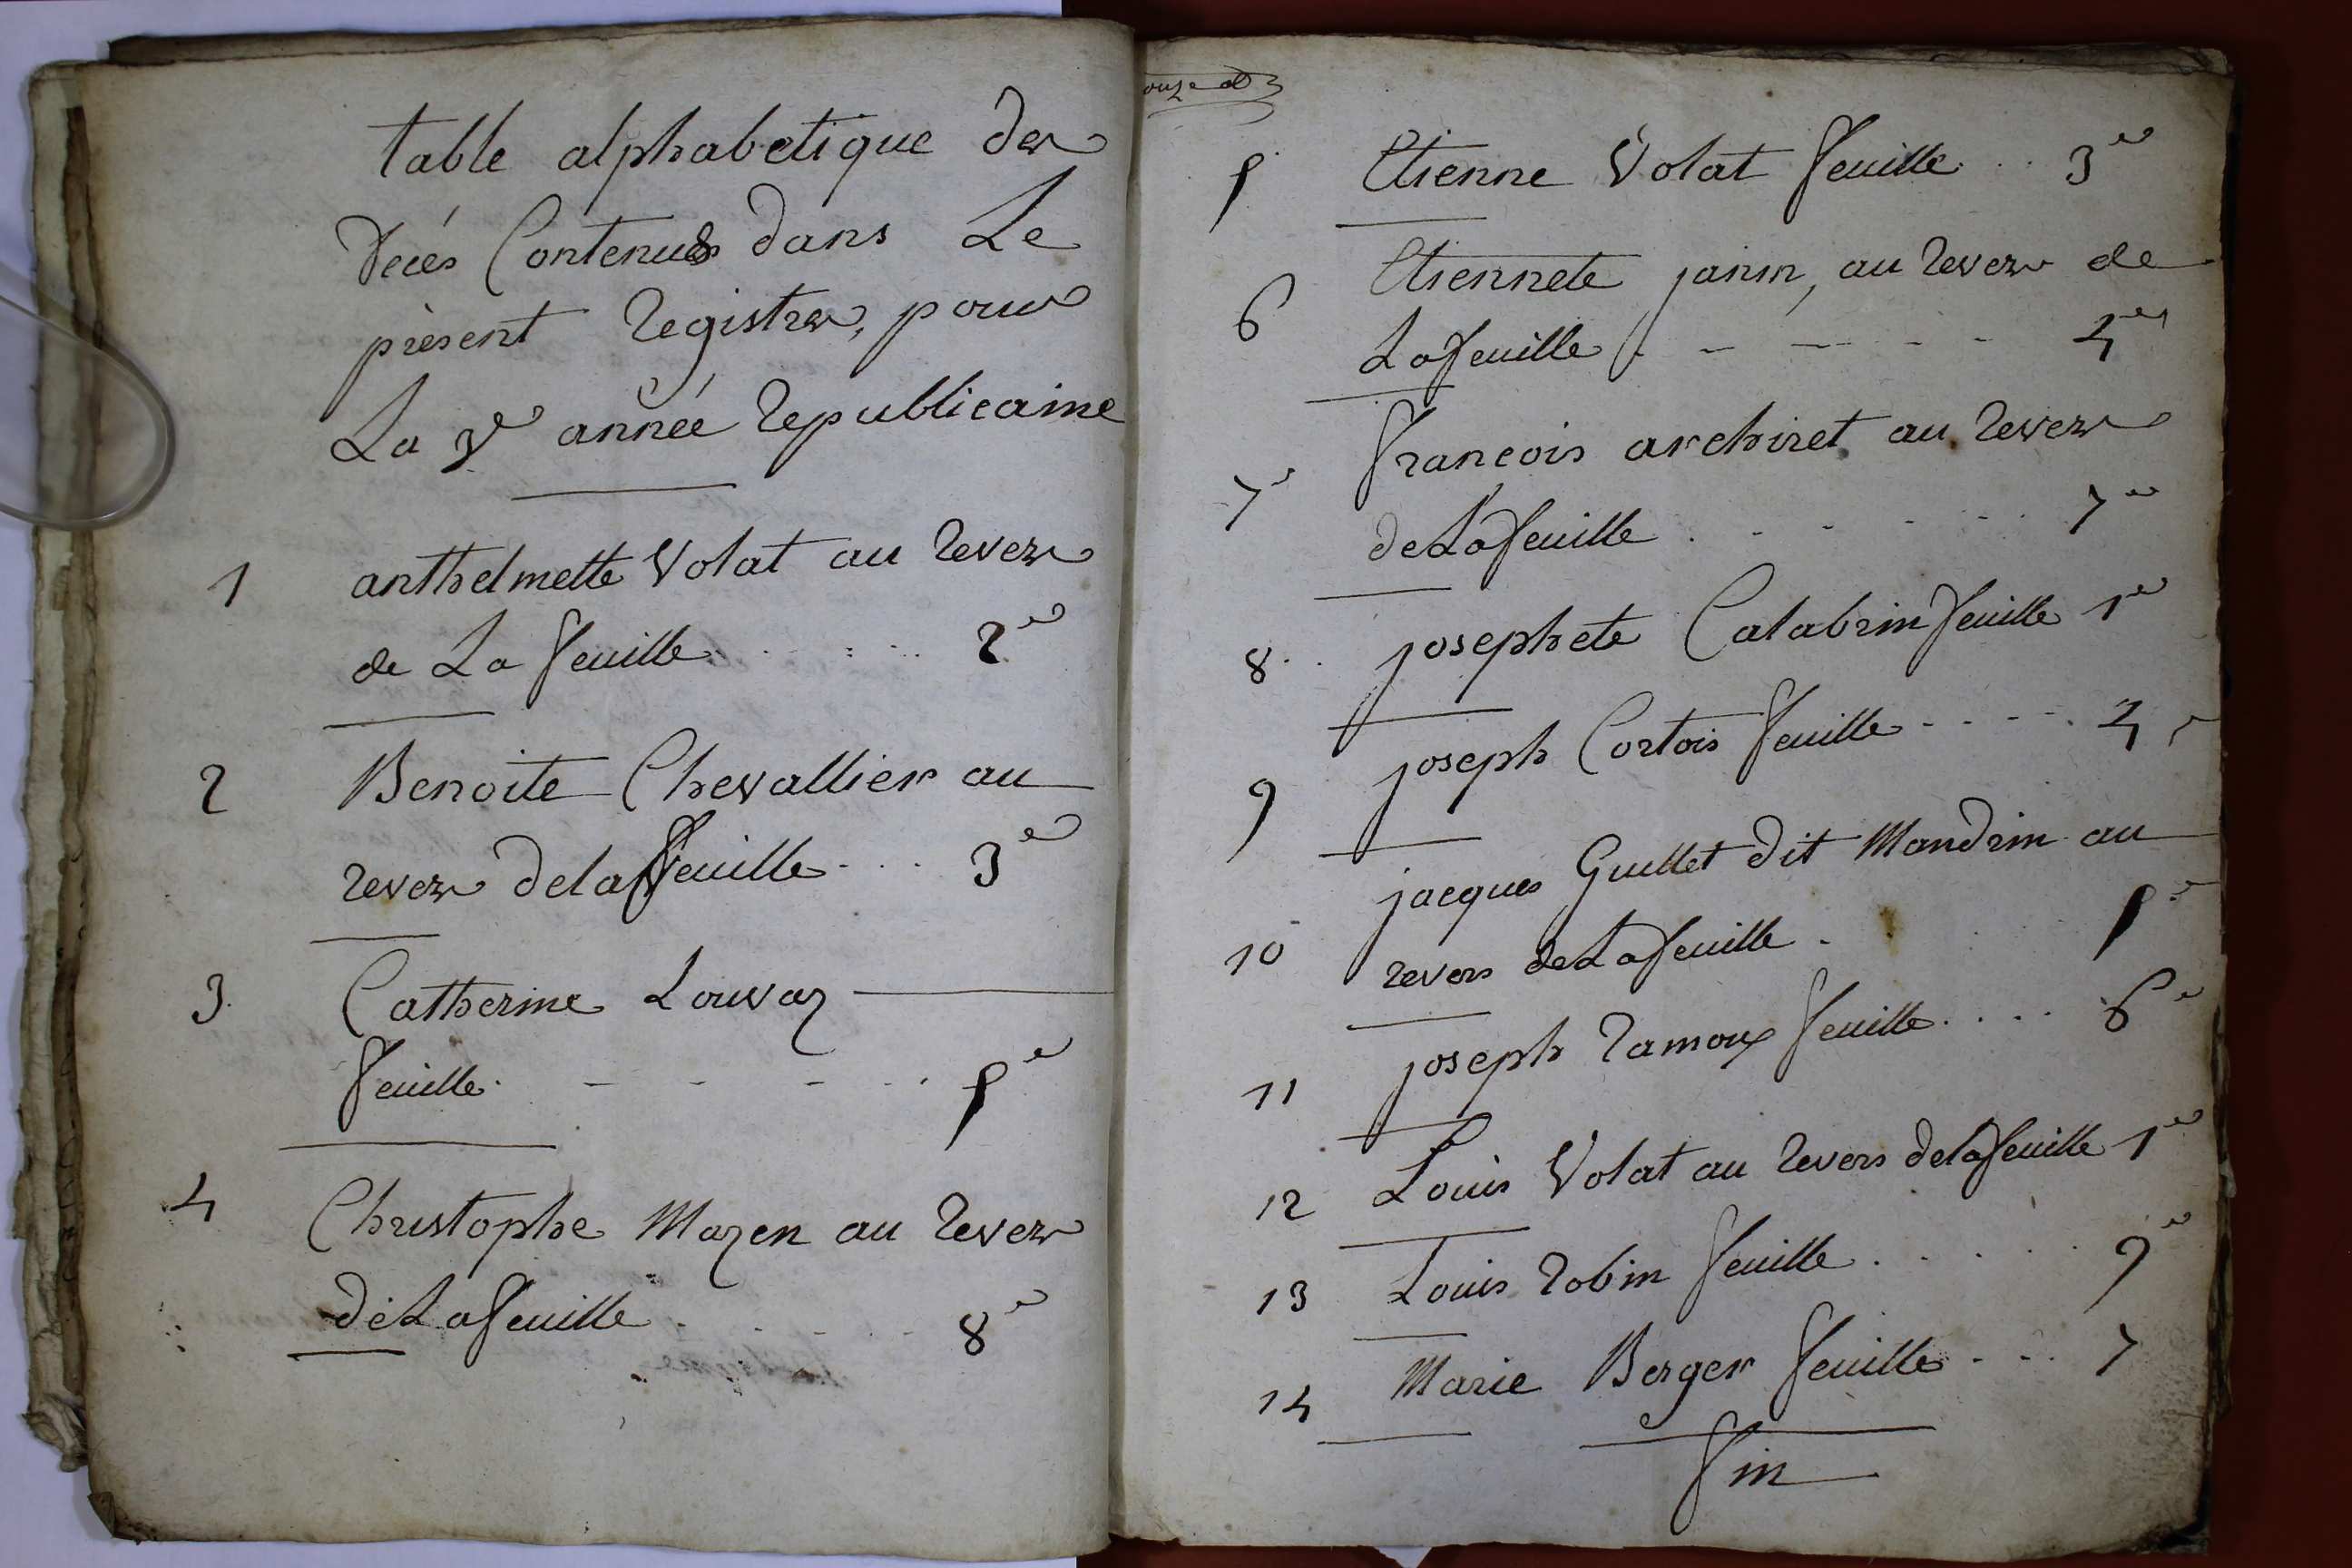 table alphabetique des
Decés Contenues dans Le
présent Registre, pour
La 3e année Republicaine
1 anthelmette Volat au Revers
de La feuille . . . . . . 2e
2 Benoite Chevallier au
revers dela feuille . . . 3e
3. Catherine Louvaz
feuille . - - - . . 5e
4 Christophe Mazen au Revers
de La feuille . . . . . 8e
onze
5 Etienne Volat feuille . . . 3e
6 Etiennete janin, au Revers de
La feuille . - - - - 4e
7e francois archiret au Revers
de La feuille . . . . . 7e
8 . . josephete Calabrin feuille 1e
9 joseph Cortois feuille . . . . . 4e
10 jacques Guillet dit Mandrin au
revers de La feuille . . . . 5e
11 joseph Ramoux feuille . . . . 6e
12 Louis Volat au Revers dela feuille 1e
13 Louis Robin feuille . . . . . 9e
14 Marie Berger feuille . . . 7
fin